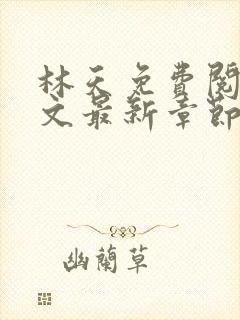 林天免費閱
文最新章節
幽蘭草